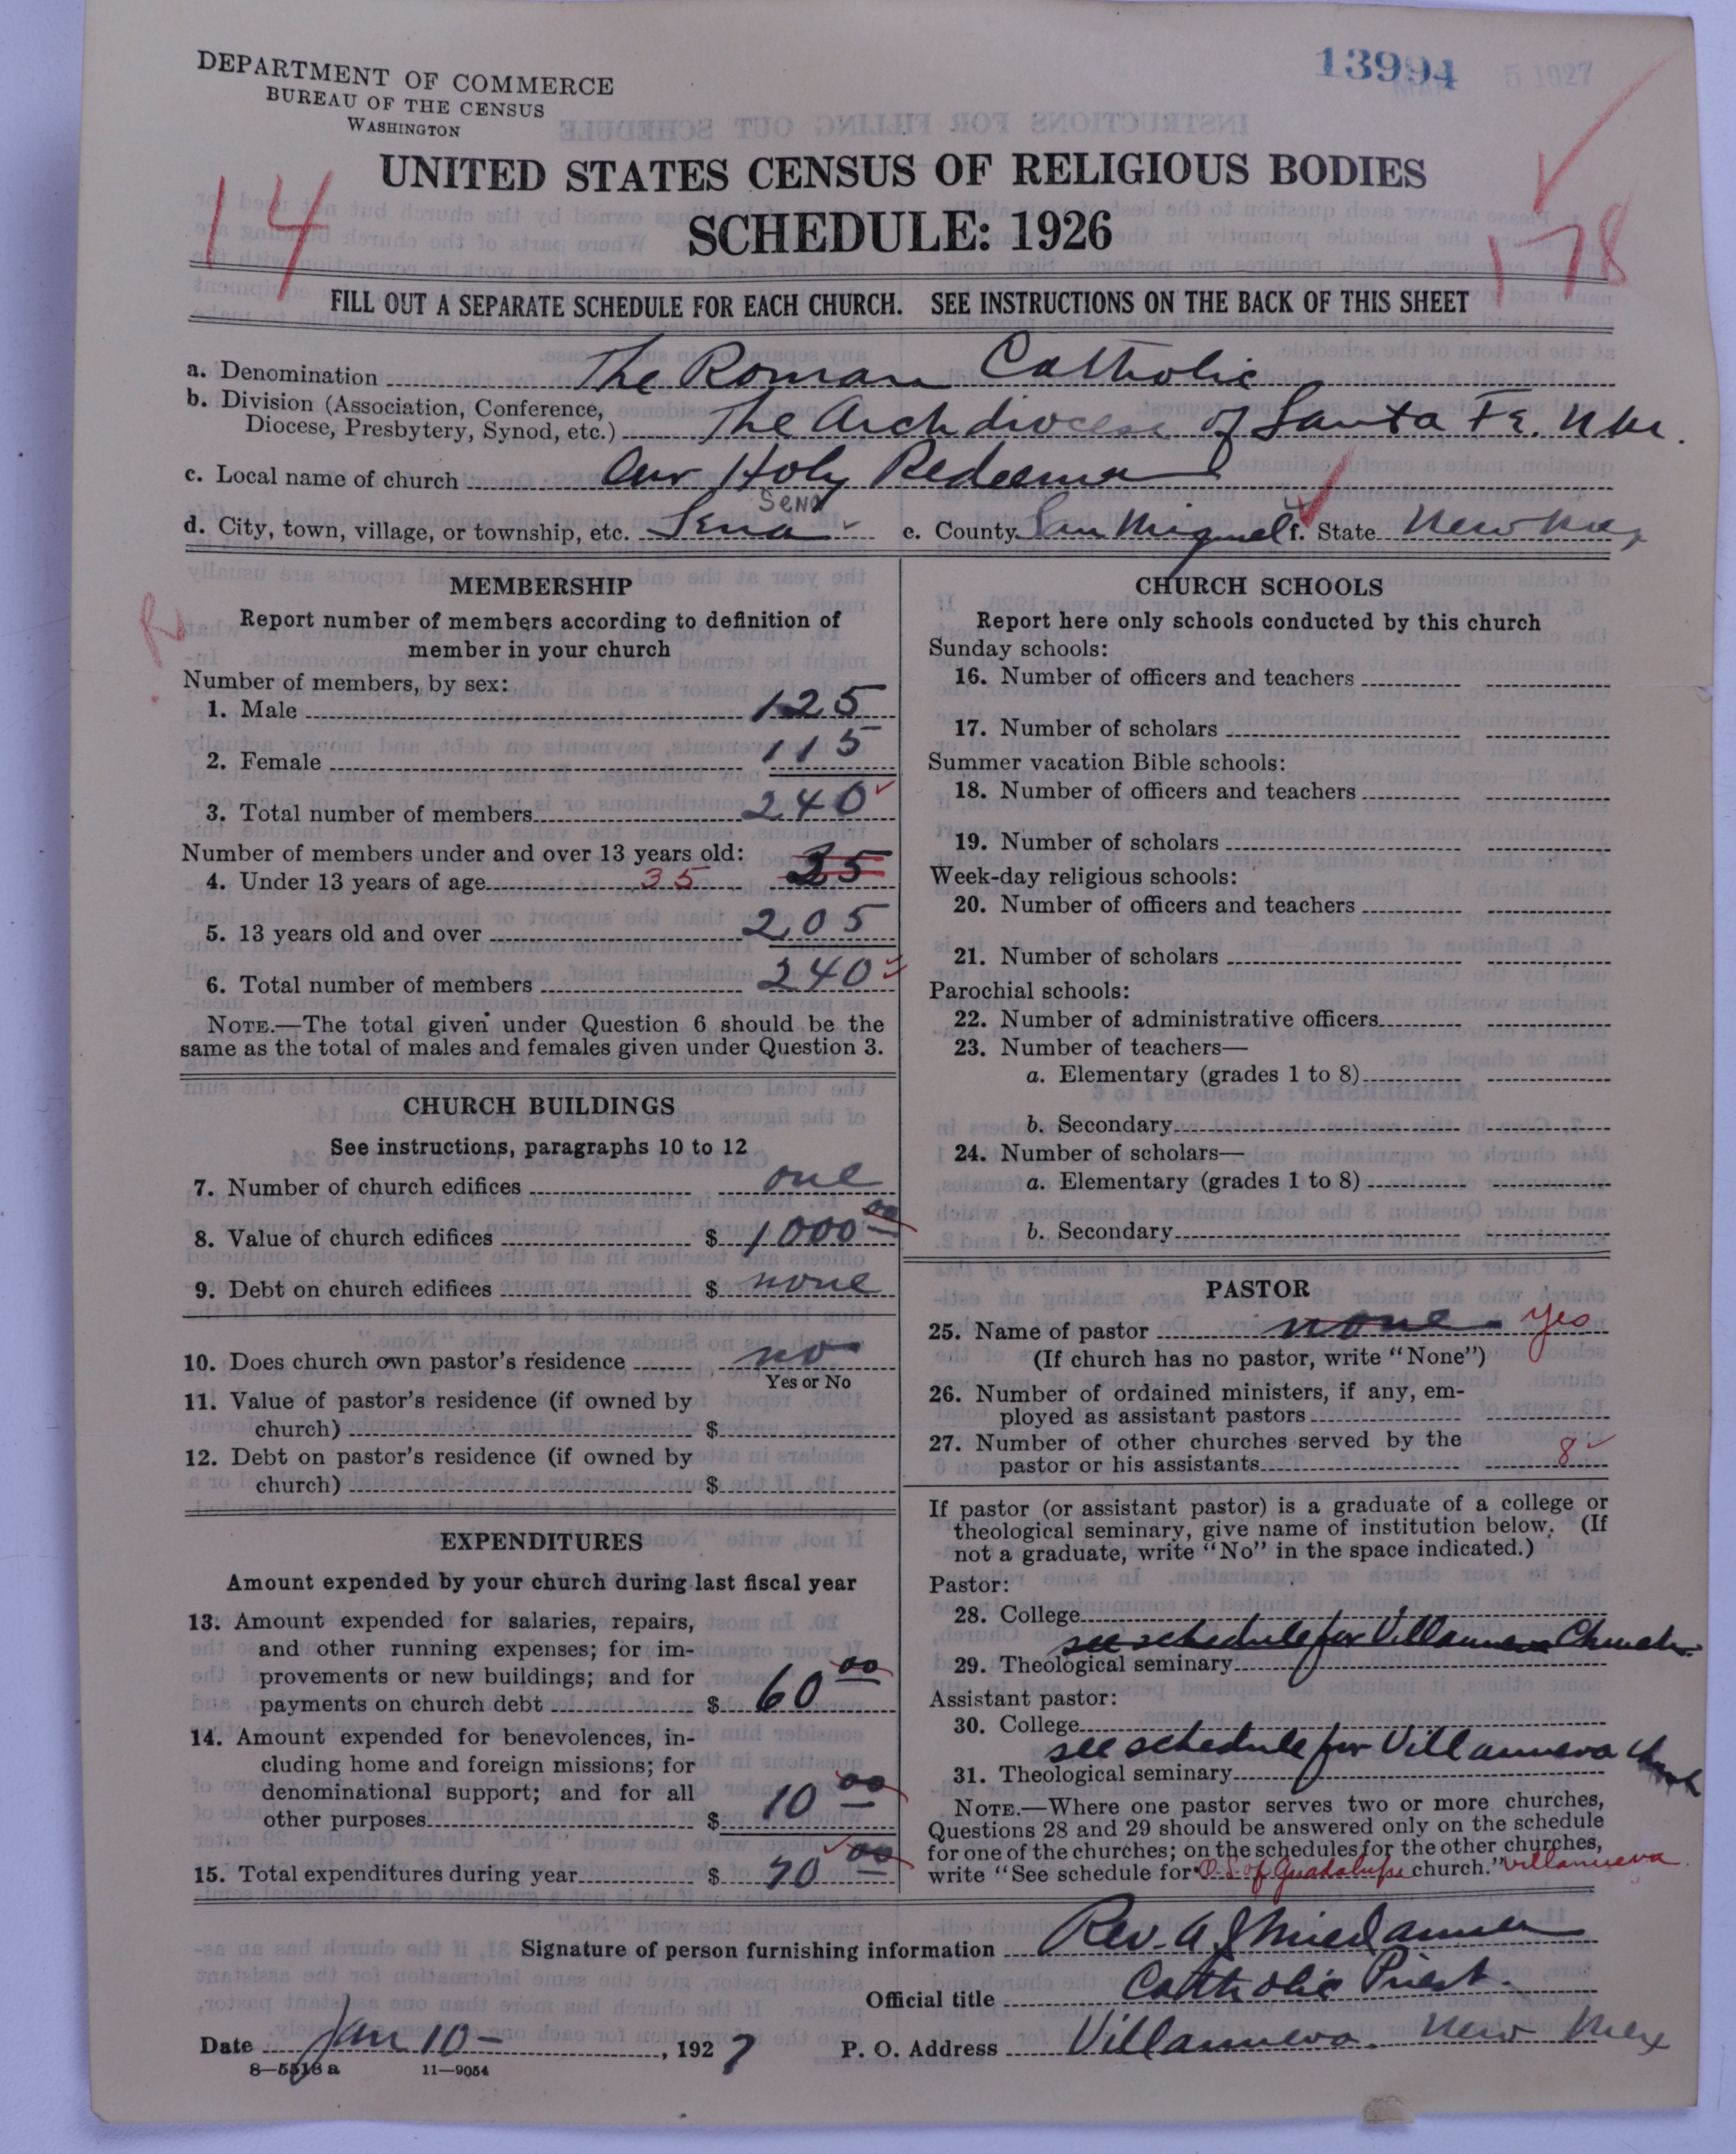 DEPARTMENT OF COMMERCE
BUREAU OF THE CENSUS
WASHINGTON
13994
5 1927
UNITED STATES CENSUS OF RELIGIOUS BODIES
SCHEDULE: 1926
14
178
FILL OUT A SEPARATE SCHEDULE FOR EACH CHURCH. SEE INSTRUCTIONS ON THE BACK OF THIS SHEET
a. Denomination The Roman Catholic
b. Division (Association, Conference,
Diocese, Presbytery, Synod, etc.) The Archdiocese of Santa Fe. N Mr.
c. Local name of church Our Holy Redeemer
Sena
d. City, town, village, or township, etc. Sena e. County San Miguel f. State New Mex
MEMBERSHIP
Report number of members according to definition of
member in your church
Number of members, by sex:
1. Male 125
2. Female 115
3. Total number of members 240
Number of members under and over 13 years old:
4. Under 13 years of age 35 35
5. 13 years old and over 205
6. Total number of members 240
NOTE.—The total given under Question 6 should be the
same as the total of males and females given under Question 3.
CHURCH BUILDINGS
See instructions, paragraphs 10 to 12
7. Number of church edifices one
8. Value of church edifices $ 1000 00
9. Debt on church edifices $ none
10. Does church own pastor's residence no
Yes or No
11. Value of pastor's residence (if owned by
church) $
12. Debt on pastor's residence (if owned by
church) $
EXPENDITURES
Amount expended by your church during last fiscal year
13. Amount expended for salaries, repairs,
and other running expenses; for im-
provements or new buildings; and for
payments on church debt $ 60 00
14. Amount expended for benevolences, in-
cluding home and foreign missions; for
denominational support; and for all
other purposes $ 10 00
15. Total expenditures during year $ 70 00
CHURCH SCHOOLS
Report here only schools conducted by this church
Sunday schools:
16. Number of officers and teachers
17. Number of scholars
Summer vacation Bible schools:
18. Number of officers and teachers
19. Number of scholars
Week-day religious schools:
20. Number of officers and teachers
21. Number of scholars
Parochial schools:
22. Number of administrative officers
23. Number of teachers—
a. Elementary (grades 1 to 8)
b. Secondary
24. Number of scholars—
a. Elementary (grades 1 to 8)
b. Secondary
PASTOR
25. Name of pastor none yes
(If church has no pastor, write "None")
26. Number of ordained ministers, if any, em-
ployed as assistant pastors
27. Number of other churches served by the
pastor or his assistants 8
If pastor (or assistant pastor) is a graduate of a college or
theological seminary, give name of institution below. (If
not a graduate, write "No" in the space indicated.)
Pastor:
28. College
see schedule for Villanueva Church
29. Theological seminary
Assistant pastor:
30. College
see schedule for Villanueva Church
31. Theological seminary
NOTE.—Where one pastor serves two or more churches,
Questions 28 and 29 should be answered only on the schedule
for one of the churches; on the schedules for the other churches,
write "See schedule for O. L. of Guadalupe church." Villanueva
Signature of person furnishing information Rev. A
Official title Catholic Priest.
Date Jan 10 — , 1927 P. O. Address Villanueva. New Mex
8—5518 a 11—9054